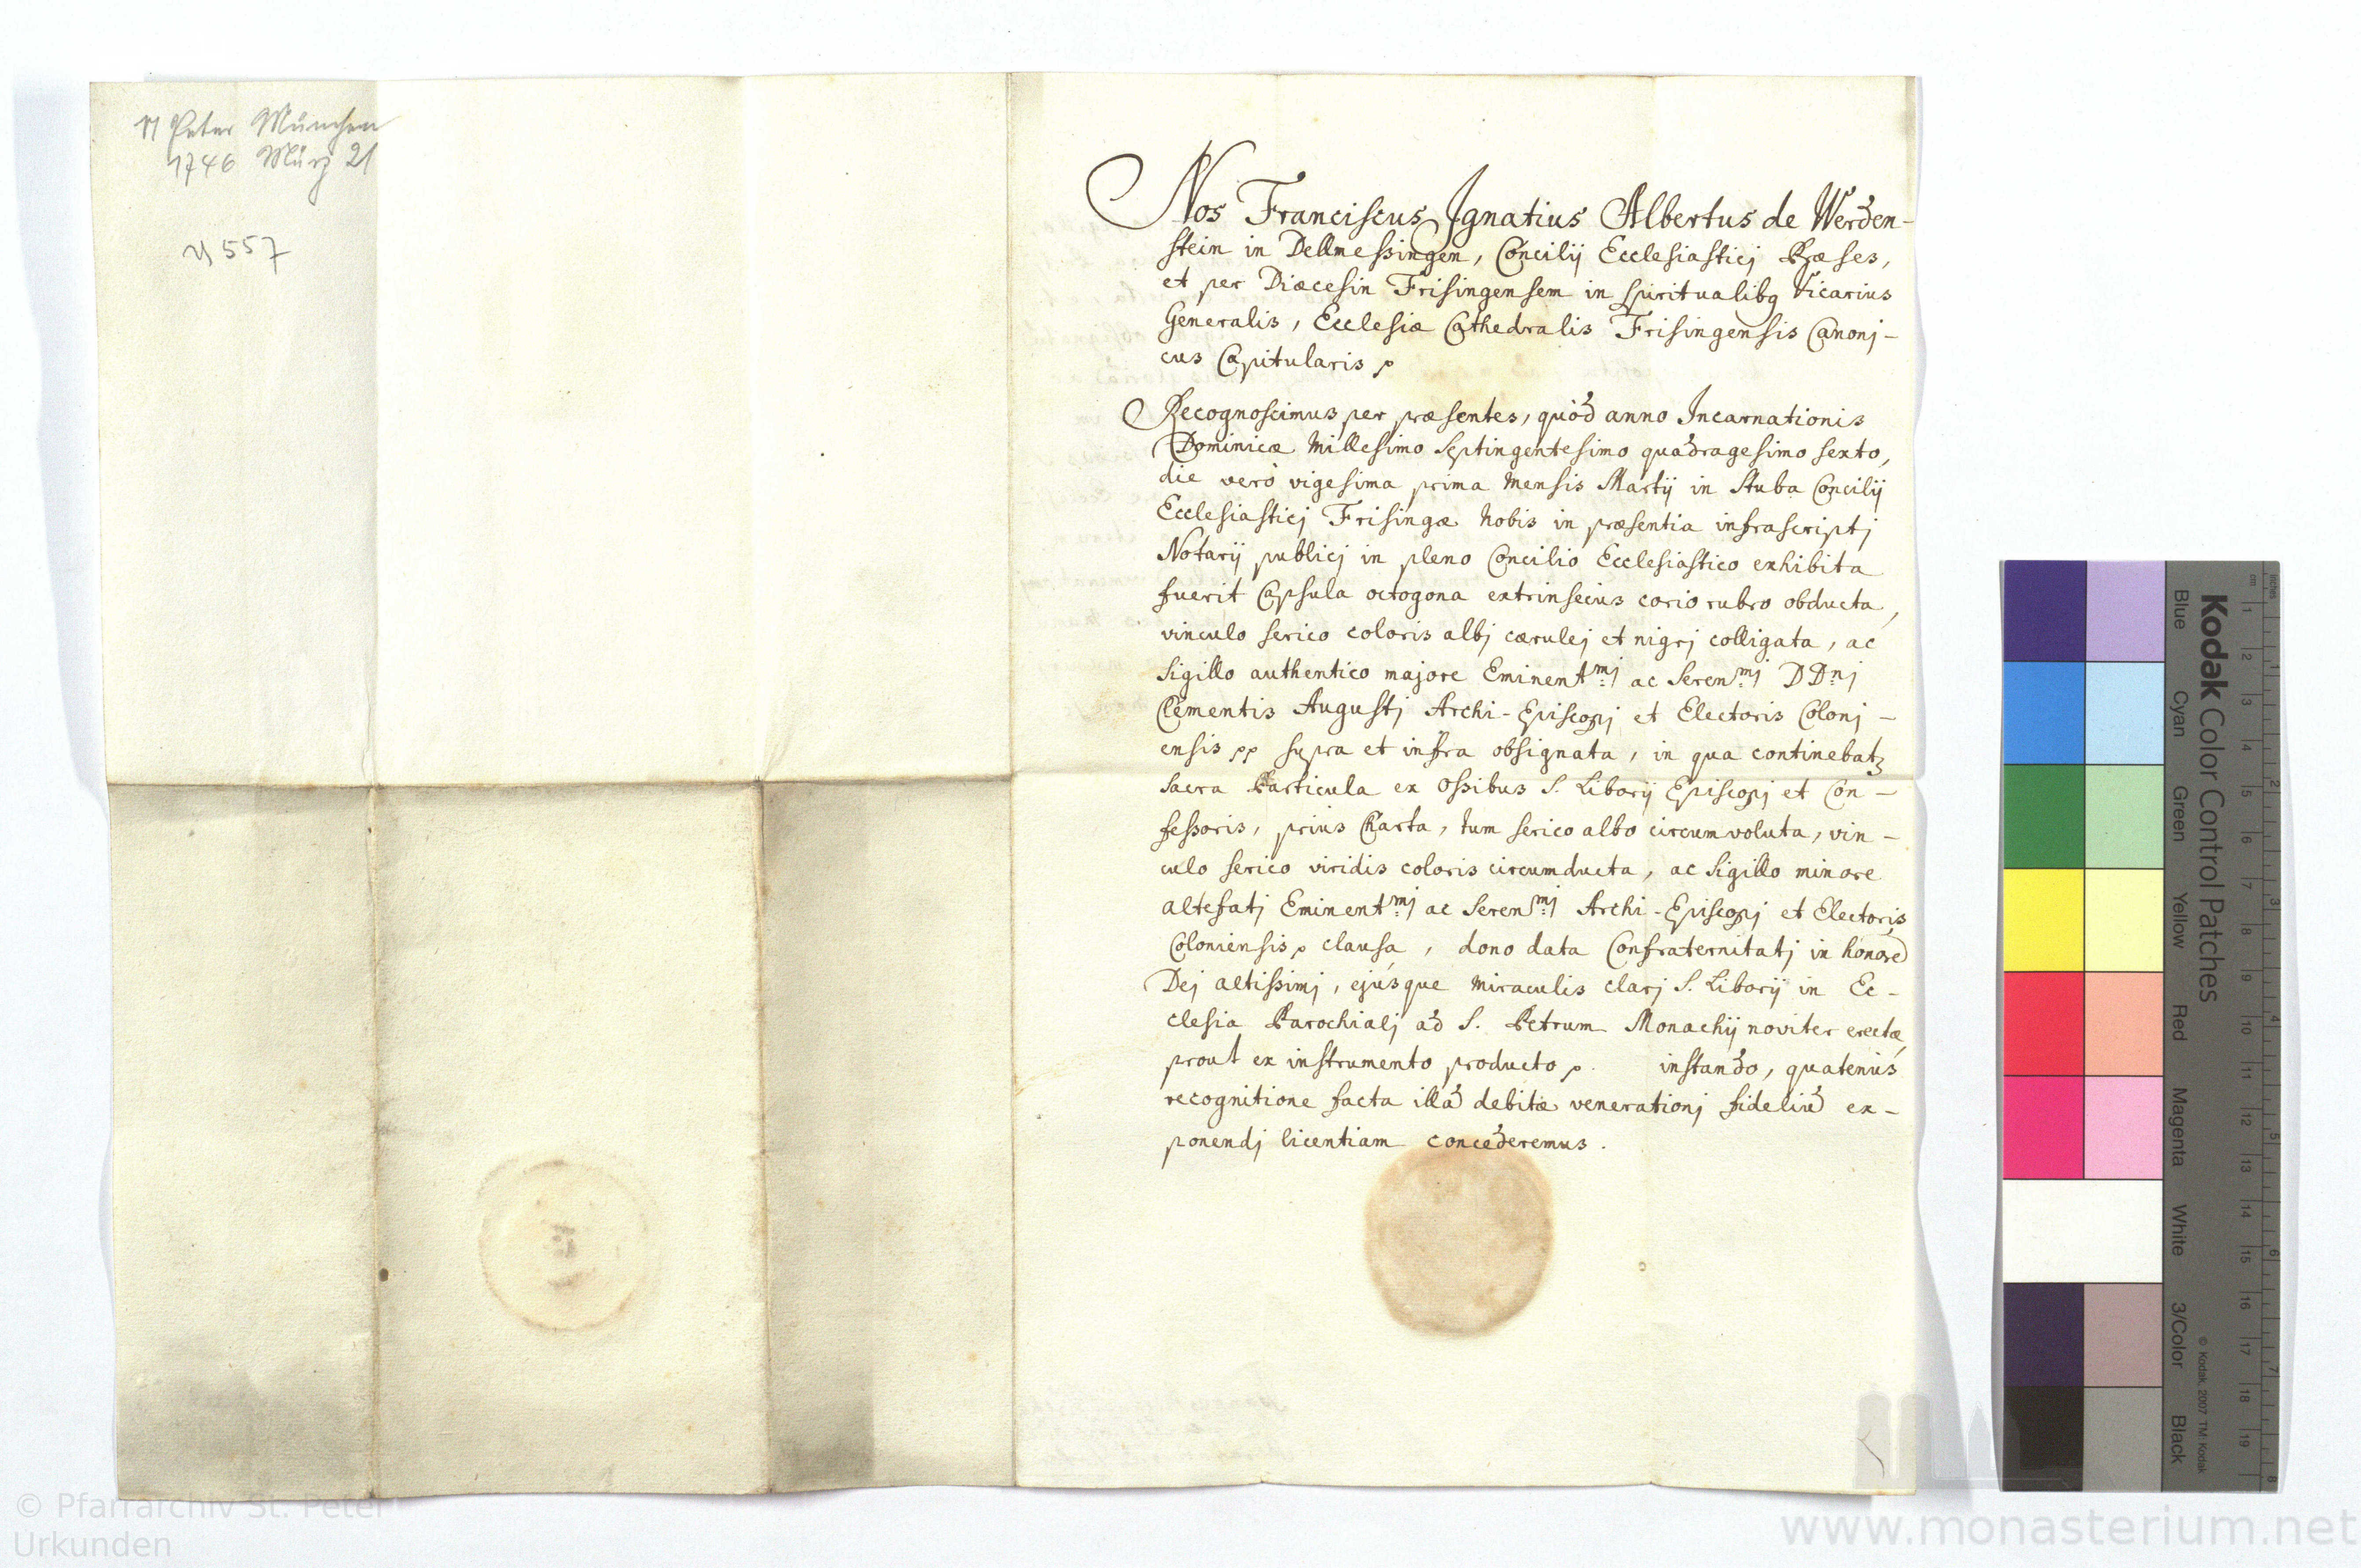 Peter München
1746 März 21
U 557
Nos Franciscus Ignatius Albertus de Werden-
stein in Dellmessingen, Concilij Ecclesiasticj Præses,
et per Diœcesin Frisingensem in spiritualibq Vicarius
Generalis, Ecclesiæ Cathedralis Frisingensis Canonj-
cus Capitularis p
Recognoscimus per præsentes, quòd anno Incarnationis
Dominicæ Millesimo Septingentesimo quadragesimo sexto,
die verò vigesima prima Mensis Martij in Stuba Concilij
Ecclesiasticj Frisingæ Nobis in præsentia infrascriptj
Notarij publicj in pleno Concilio Ecclesiastico exhibita
fuerit Capsula octogona extrinsecus corio rubro obducta,
vinculo serico coloris albj cærulej et nigrj colligata, ac
Sigillo authentico majore Eminentmj ac Serenmj DDnj
Clementis Augustj Archi-Episcopj et Electoris Colonj-
ensis pp supra et infra obsignata, in qua continebatz
Sacra Particula ex Ossibus S. Liborij Episcopj et Con-
fessoris, prius Charta, tum serico albo circumvoluta, vin-
culo serico viridis coloris circumducta, ac Sigillo minore
altefatj Eminentmj ac Serenmj Archi-Episcopj et Electoris
Coloniensis p clausa, dono data Confraternitatj in honorē
Dej altissimj, ejúsque Miraculis clarj S. Liborij in Ec-
clesia Parochialj ad S. Petrum Monachij noviter erectæ,
prout ex instrumento producto p. instando, quatenùs
recognitione facta illā debitæ venerationj fideliū ex-
ponendj licentiam concederemus.
© Pfarrarchiv St. Peter
Urkunden
www.monasterium.net
Kodak Color Control Patches
Blue Cyan Green Yellow Red Magenta White 3/Color Black
© Kodak, 2007 TM: Kodak
inches
cm
1 2 3 4 5 6 7 8 9 10 11 12 13 14 15 16 17 18 19
1 2 3 4 5 6 7 8